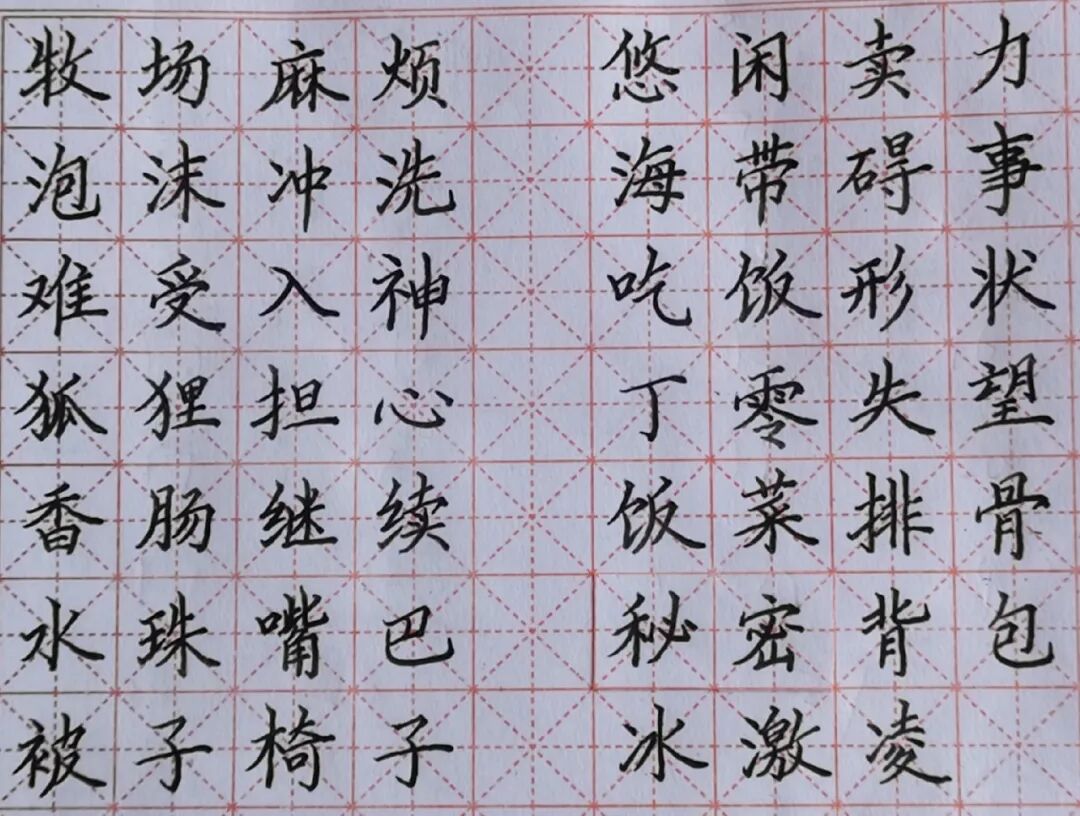 牧场麻烦 悠闲卖力
泡沫冲洗 海带碍事
难受入神 吃饭形状
狐狸担心 丁零失望
香肠继续 饭菜排骨
水珠嘴巴 秘密背包
被子椅子 冰激凌